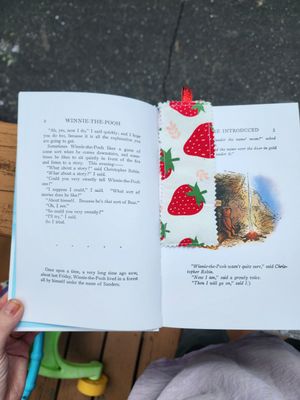 2
WINNIE-THE-POOH
"Ah, yes, now I do," I said quickly; and I hope
you do too, because it is all the explanation you
are going to get.
Sometimes Winnie-the-Pooh likes a game of
some sort when he comes downstairs, and some-
times he likes to sit quietly in front of the fire
and listen to a story. This evening—
"What about a story?" said Christopher Robin.
"What about a story?" I said.
"Could you very sweetly tell Winnie-the-Pooh
one?"
"I suppose I could," I said. "What sort of
stories does he like?"
"About himself. Because he's that sort of Bear."
"Oh, I see."
"So could you very sweetly?"
"I'll try," I said.
So I tried.
Once upon a time, a very long time ago now,
about last Friday, Winnie-the-Pooh lived in a forest
all by himself under the name of Sanders.
E INTRODUCED
under the name' mean?" asked
the name over the door in gold
under it."
"Winnie-the-Pooh wasn't quite sure," said Chris-
topher Robin.
"Now I am," said a growly voice.
"Then I will go on," said I.)